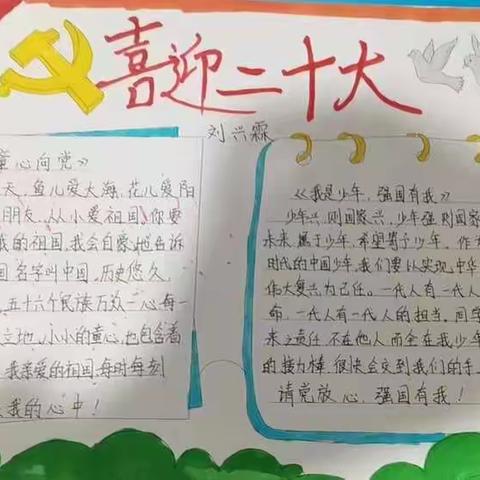 喜迎二十大
刘兴霖
童心向党》
天，鱼儿爱大海，花儿爱阳
朋友，从小爱祖国，你要
我的祖国，我会自豪地告诉
国名字叫中国，历史悠久，
五十六个民族万众一心每一
立地，小小的童心，也包含着
我亲爱的祖国，每时每刻
我的心中！
《我是少年，强国有我》
少年兴，则国家兴，少年强则国家
未来，属于少年，希望寄于少年，作为
时代的中国少年，我们要以实现中华
伟大复兴为己任。一代人有一代人
命，一代人有一代人的担当，同学
来之责任不在他人而全在我少年
的接力棒，很快会交到我们的手
请党放心，强国有我！